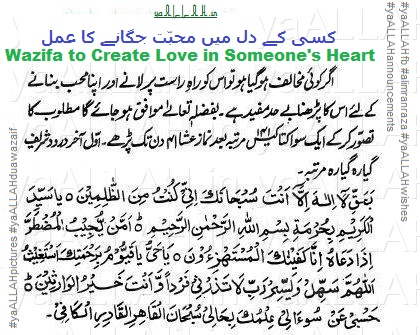 کسی کے دل میں محبّت جگانے کا عمل
Wazifa to Create Love in Someone's Heart
اگر کوئی مخالف ہو گیا ہو تو اس کو راہِ راست پر لانے اور اپنا محب بنانے
کے لئے اس کا پڑھنا بے حد مفید ہے۔ بفضلہٖ تعالےٰ موافق ہو جائے گا مطلوب کا
تصوّر کر کے ایک سو اکتالیس ۱۴۱ مرتبہ بعد نمازِ عشا ۴۱ دن تک پڑھے۔ اوّل آخر درود شریف
گیارہ گیارہ مرتبہ۔
بِحَقِّ لَا اِلٰهَ اِلَّا اَنْتَ سُبْحَانَكَ اِنِّيْ كُنْتُ مِنَ الظّٰلِمِيْنَ ○ يَا سَيِّدَ
الْكَرِيْمِ بِحُرْمَةِ بِسْمِ اللهِ الرَّحْمٰنِ الرَّحِيْمِ ○ اَمَّنْ يُّجِيْبُ الْمُضْطَرَّ
اِذَا دَعَاهُ اِنَّا كَفَيْنٰكَ الْمُسْتَهْزِءُوْنَ ○ يَا حَيُّ يَا قَيُّوْمُ بِرَحْمَتِكَ اَسْتَغِيْثُ
اَللّٰهُمَّ سَهِّلْ وَيَسِّرْ رَبِّ لَا تَذَرْنِيْ فَرْدًا وَّ اَنْتَ خَيْرُ الْوَارِثِيْنَ ○
حَسْبِيْ عَنْ سُوَالِيْ عِلْمُكَ بِحَالِيْ سُبْحَانَ الْقَاهِرِ الْقَادِرِ الْكَافِيْ۔
#yaALLAHpictures #yaALLAHduawazaif
#yaALLAHfb #alimranraza #yaALLAHwishes
#yaALLAHannouncements